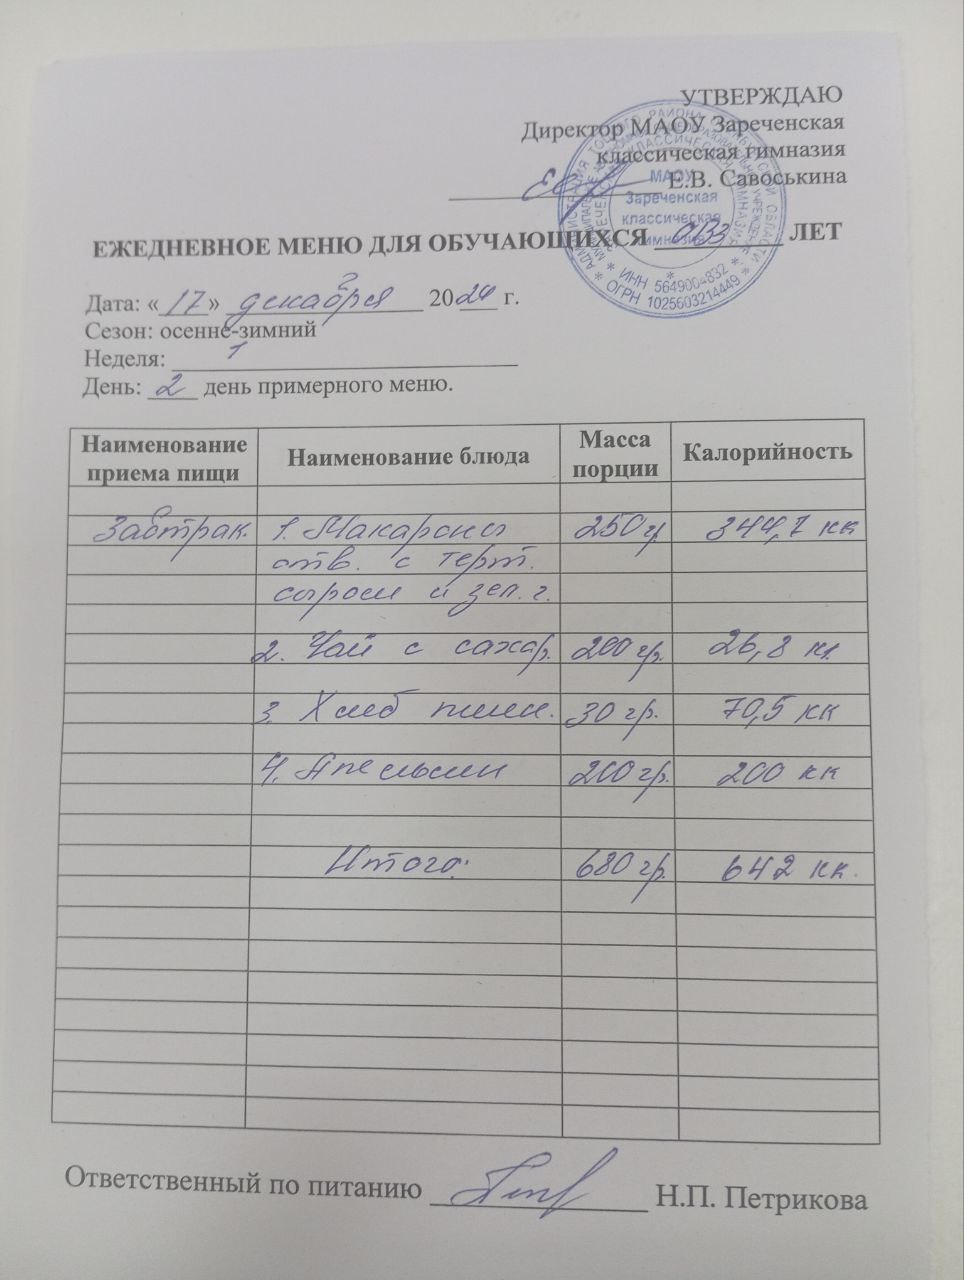 УТВЕРЖДАЮ
Директор МАОУ Зареченская
классическая гимназия
Е.В. Савоськина
МАОУ
Зареченская
классическая
гимназия
* ИНН 5649004832 *
* ОГРН 1025603214449 *
ЕЖЕДНЕВНОЕ МЕНЮ ДЛЯ ОБУЧАЮЩИХСЯ ОВЗ ЛЕТ
Дата: «17» декабря 2024 г.
Сезон: осенне-зимний
Неделя: 1
День: 2 день примерного меню.
Наименование приема пищи Наименование блюда Масса порции Калорийность
Завтрак. 1. Макароны 250 гр 344,7 кк
отв. с терт.
сыром и зел. г.
2. Чай с сахар. 200 гр. 26,8 кк
3. Хлеб пшен. 30 гр. 70,5 кк
4. Апельсин 200 гр. 200 кк
Итого: 680 гр. 642 кк.
Ответственный по питанию Н.П. Петрикова